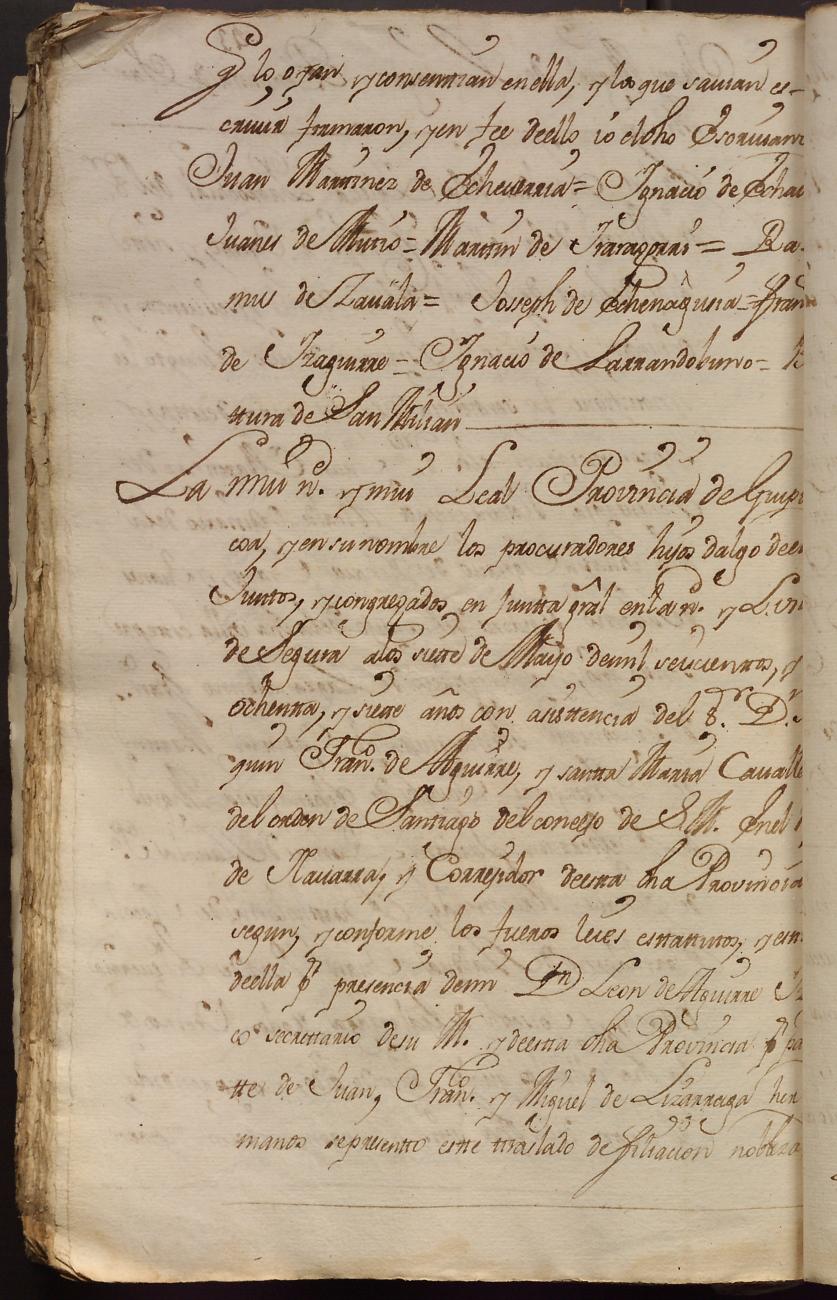 lo oyan y consenttian en ella, y los que savian es-
crivir firmaron, y en fee de ello io el dho Escrivano
Juan Martinez de Echeverria = Ignacio de Echa
Juanes de Murio = Martin de =
mus de Zavala = Joseph de Echenagusia = Fran
de Izaguirre = Ignacio de Larrandoburo =
ttura de San Milian
La mui n. y mui Leal Provincia de Guipu
coa, y en su nombre los procuradores hijos dalgo de es
Juntos, y congregados en Juntta gral en la n. y L. vi
de Segura a los siette de Mayo de mil seiscienttos, y
ochentta, y siette años con asisttencia del S.r D.n
quin Fran.co de Aguirre, y santta Maria Cavalle
del orden de Santtiago del consejo de S. M. En el
de Navarra, y Correxidor de estta dha Provincia
segun, y conforme los fueros leies esttattutos, y
de ella p.r presencia de mi D.n Leon de Aguirre
co secrettario de su M. y de estta dha Provincia p.r pa
tte de Juan, Fran.co y Miguel de Lizarraga her
manos se presentto estte traslado de filiacion nobleza